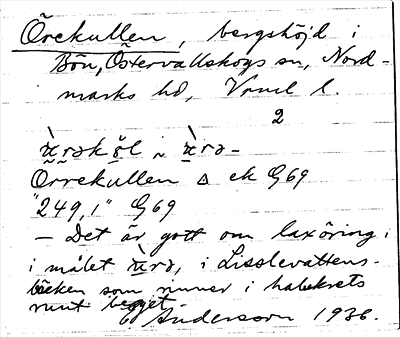 Örekullen, bergshöjd i
Bön, Östervallskogs sn, Nord-
marks hd, Vrml l.
2
Örrekullen △ ek G69
"249,1" G69
– Det är gott om laxöring i
i målet, i Lisslevattens-
bäcken som rinner i halvkrets
runt berget.
Andersson 1936.